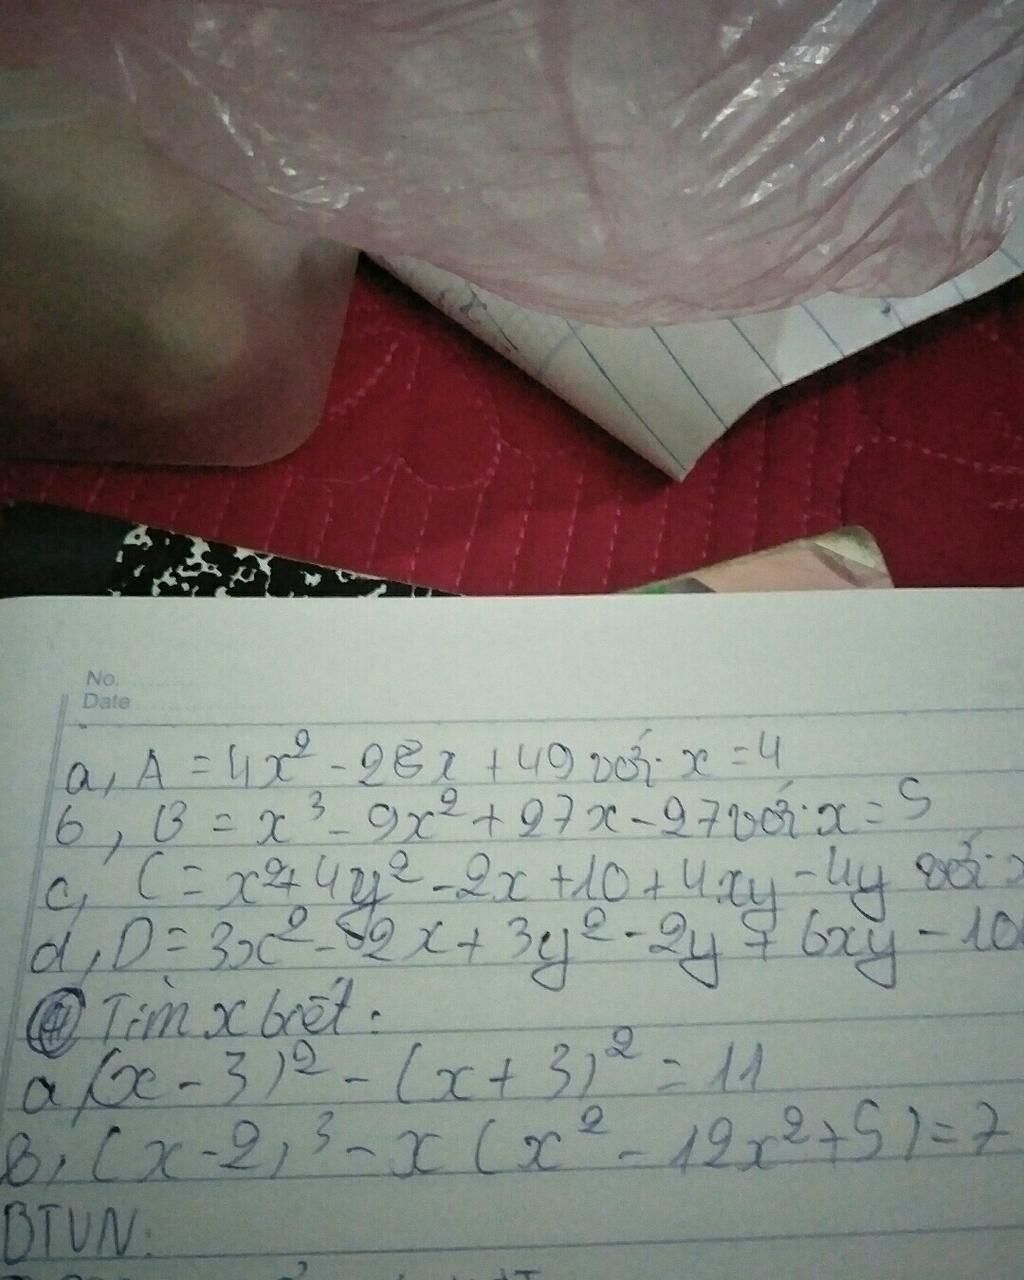 No.
Date
a, A = 4x² - 28x + 49 với x = 4
b, B = x³ - 9x² + 27x - 27 với x = 5
c, C = x² + 4y² - 2x + 10 + 4xy - 4y với x
d, D = 3x² - 2x + 3y² - 2y + 6xy - 10
Tìm x biết:
a, (x - 3)² - (x + 3)² = 11
B, (x - 2)³ - x (x² - 12x² + 5) = 7
BTVN: